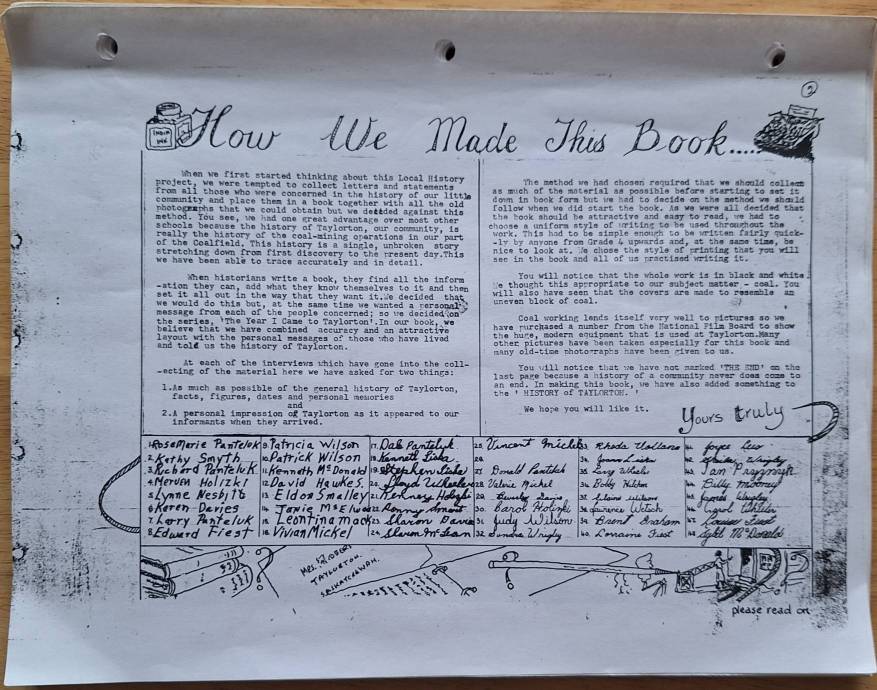 2
INDIA
INK
How We Made This Book.....
When we first started thinking about this Local History
project, we were tempted to collect letters and statements
from all those who were concerned in the history of our little
community and place them in a book together with all the old
photographs that we could obtain but we decided against this
method. You see, we had one great advantage over most other
schools because the history of Taylorton, our community, is
really the history of the coal-mining operations in our part
of the Coalfield. This history is a single, unbroken story
stretching down from first discovery to the present day.This
we have been able to trace accurately and in detail.
When historians write a book, they find all the inform
-ation they can, add what they know themselves to it and then
set it all out in the way that they want it.We decided that
we would do this but, at the same time we wanted a personal
message from each of the people concerned; so we decided on
the series, 'The Year I Came to Taylorton'.In our book, we
believe that we have combined accuracy and an attractive
layout with the personal messages of those who have lived
and told us the history of Taylorton.
At each of the interviews which have gone into the coll-
-ecting of the material here we have asked for two things:
1.As much as possible of the general history of Taylorton,
facts, figures, dates and personal memories
and
2.A personal impression of Taylorton as it appeared to our
informants when they arrived.
The method we had chosen required that we should collect
as much of the material as possible before starting to set it
down in book form but we had to decide on the method we should
follow when we did start the book. As we were all decided that
the book should be attractive and easy to read, we had to
choose a uniform style of writing to be used throughout the
work. This had to be simple enough to be written fairly quick-
-ly by anyone from Grade 4 upwards and, at the same time, be
nice to look at. We chose the style of printing that you will
see in the book and all of us practised writing it.
You will notice that the whole work is in black and white
We thought this appropriate to our subject matter - coal. You
will also have seen that the covers are made to resemble an
uneven block of coal.
Coal working lends itself very well to pictures so we
have purchased a number from the National Film Board to show
the huge, modern equipment that is used at Taylorton.Many
other pictures have been taken especially for this book and
many old-time photographs have been given to us.
You will notice that we have not marked 'THE END' on the
last page because a history of a community never does come to
an end. In making this book, we have also added something to
the ' HISTORY of TAYLORTON. '
We hope you will like it.
Yours truly
1. RoseMarie Panteluk
2. Kathy Smyth
3. Richard Panteluk
4. Merven Holizki
5. Lynne Nesbitt
6. Karen Davies
7. Larry Panteluk
8. Edward Fiest
9. Patricia Wilson
10. Patrick Wilson
11. Kenneth McDonald
12. David Hawkes.
13. Eldon Smalley
14. Janie McElwee
15. Leontina mack
16. Vivian Mickel
17. Dale Panteluk
18. Kenneth Liska
19. Stephen Liska
20. Lloyd Wheeler
21. Kenneay Holizki
22. Ronny Smart
23. Sharon Davie
24. Sharon McLean
25. Vincent Mickel
26.
27. Donald Panteluk
28. Valerie Mickel
29. Beverley Davis
30. Carol Holizki
31. Judy Wilson
32. Sandra Wrigly
Rhoda
34.
35. Larry
36. Bobby
37. Elaine Wilson
38. Laurence Wetsch
39. Brent Graham
40. Lorraine Fiest
41. Joyce
42. Wrigley
43. Ian
44. Billy Mooney
45. James Wrigley
46. Carol Wheeler
47. Louise Fiest
48. McDonald
MRS.
TAYLORTON.
SASKATCHEWAN.
please read on